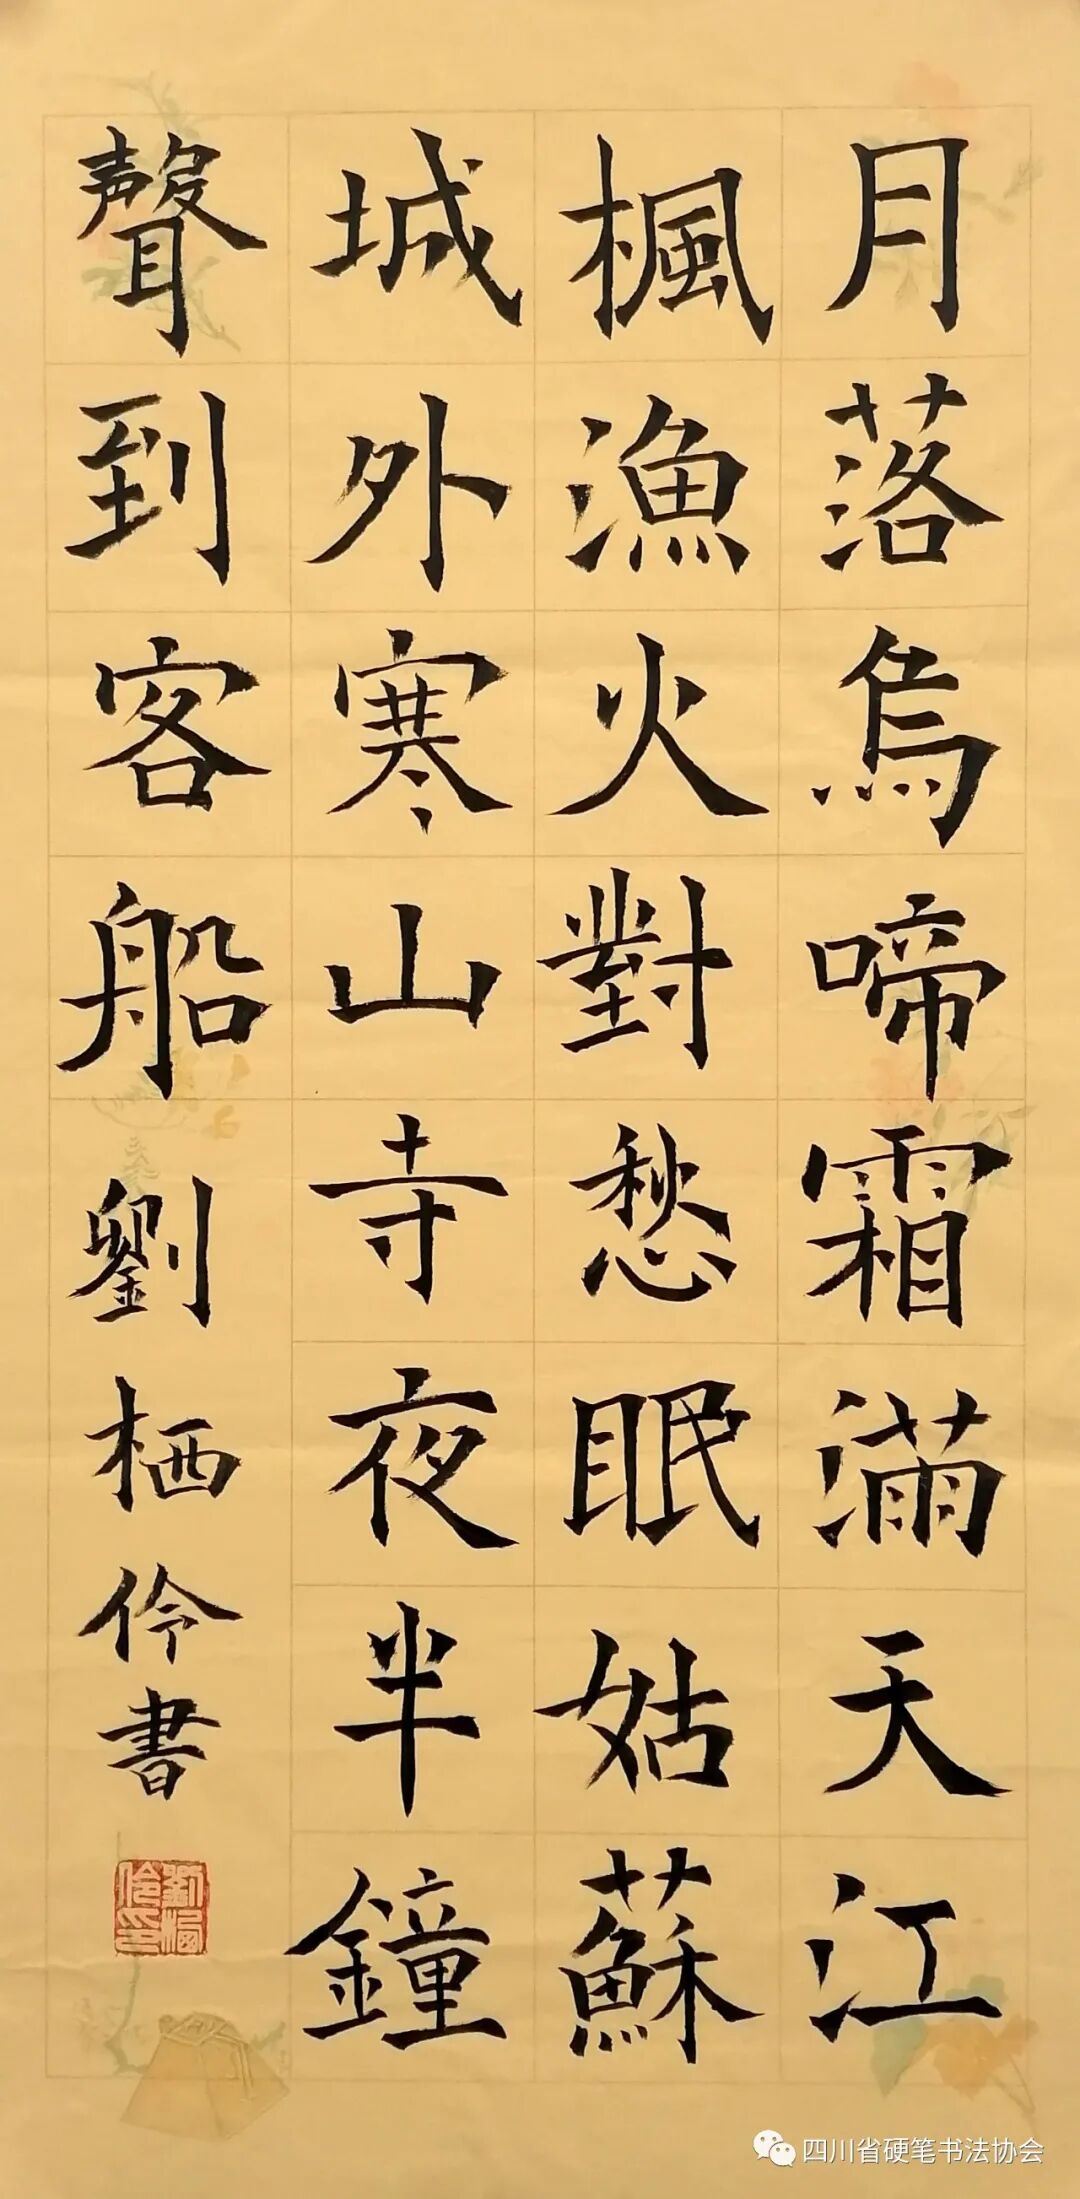 月落烏啼霜滿天江
楓漁火對愁眠姑蘇
城外寒山寺夜半鐘
聲到客船
劉栖伶書
劉栖伶印
四川省硬笔书法协会